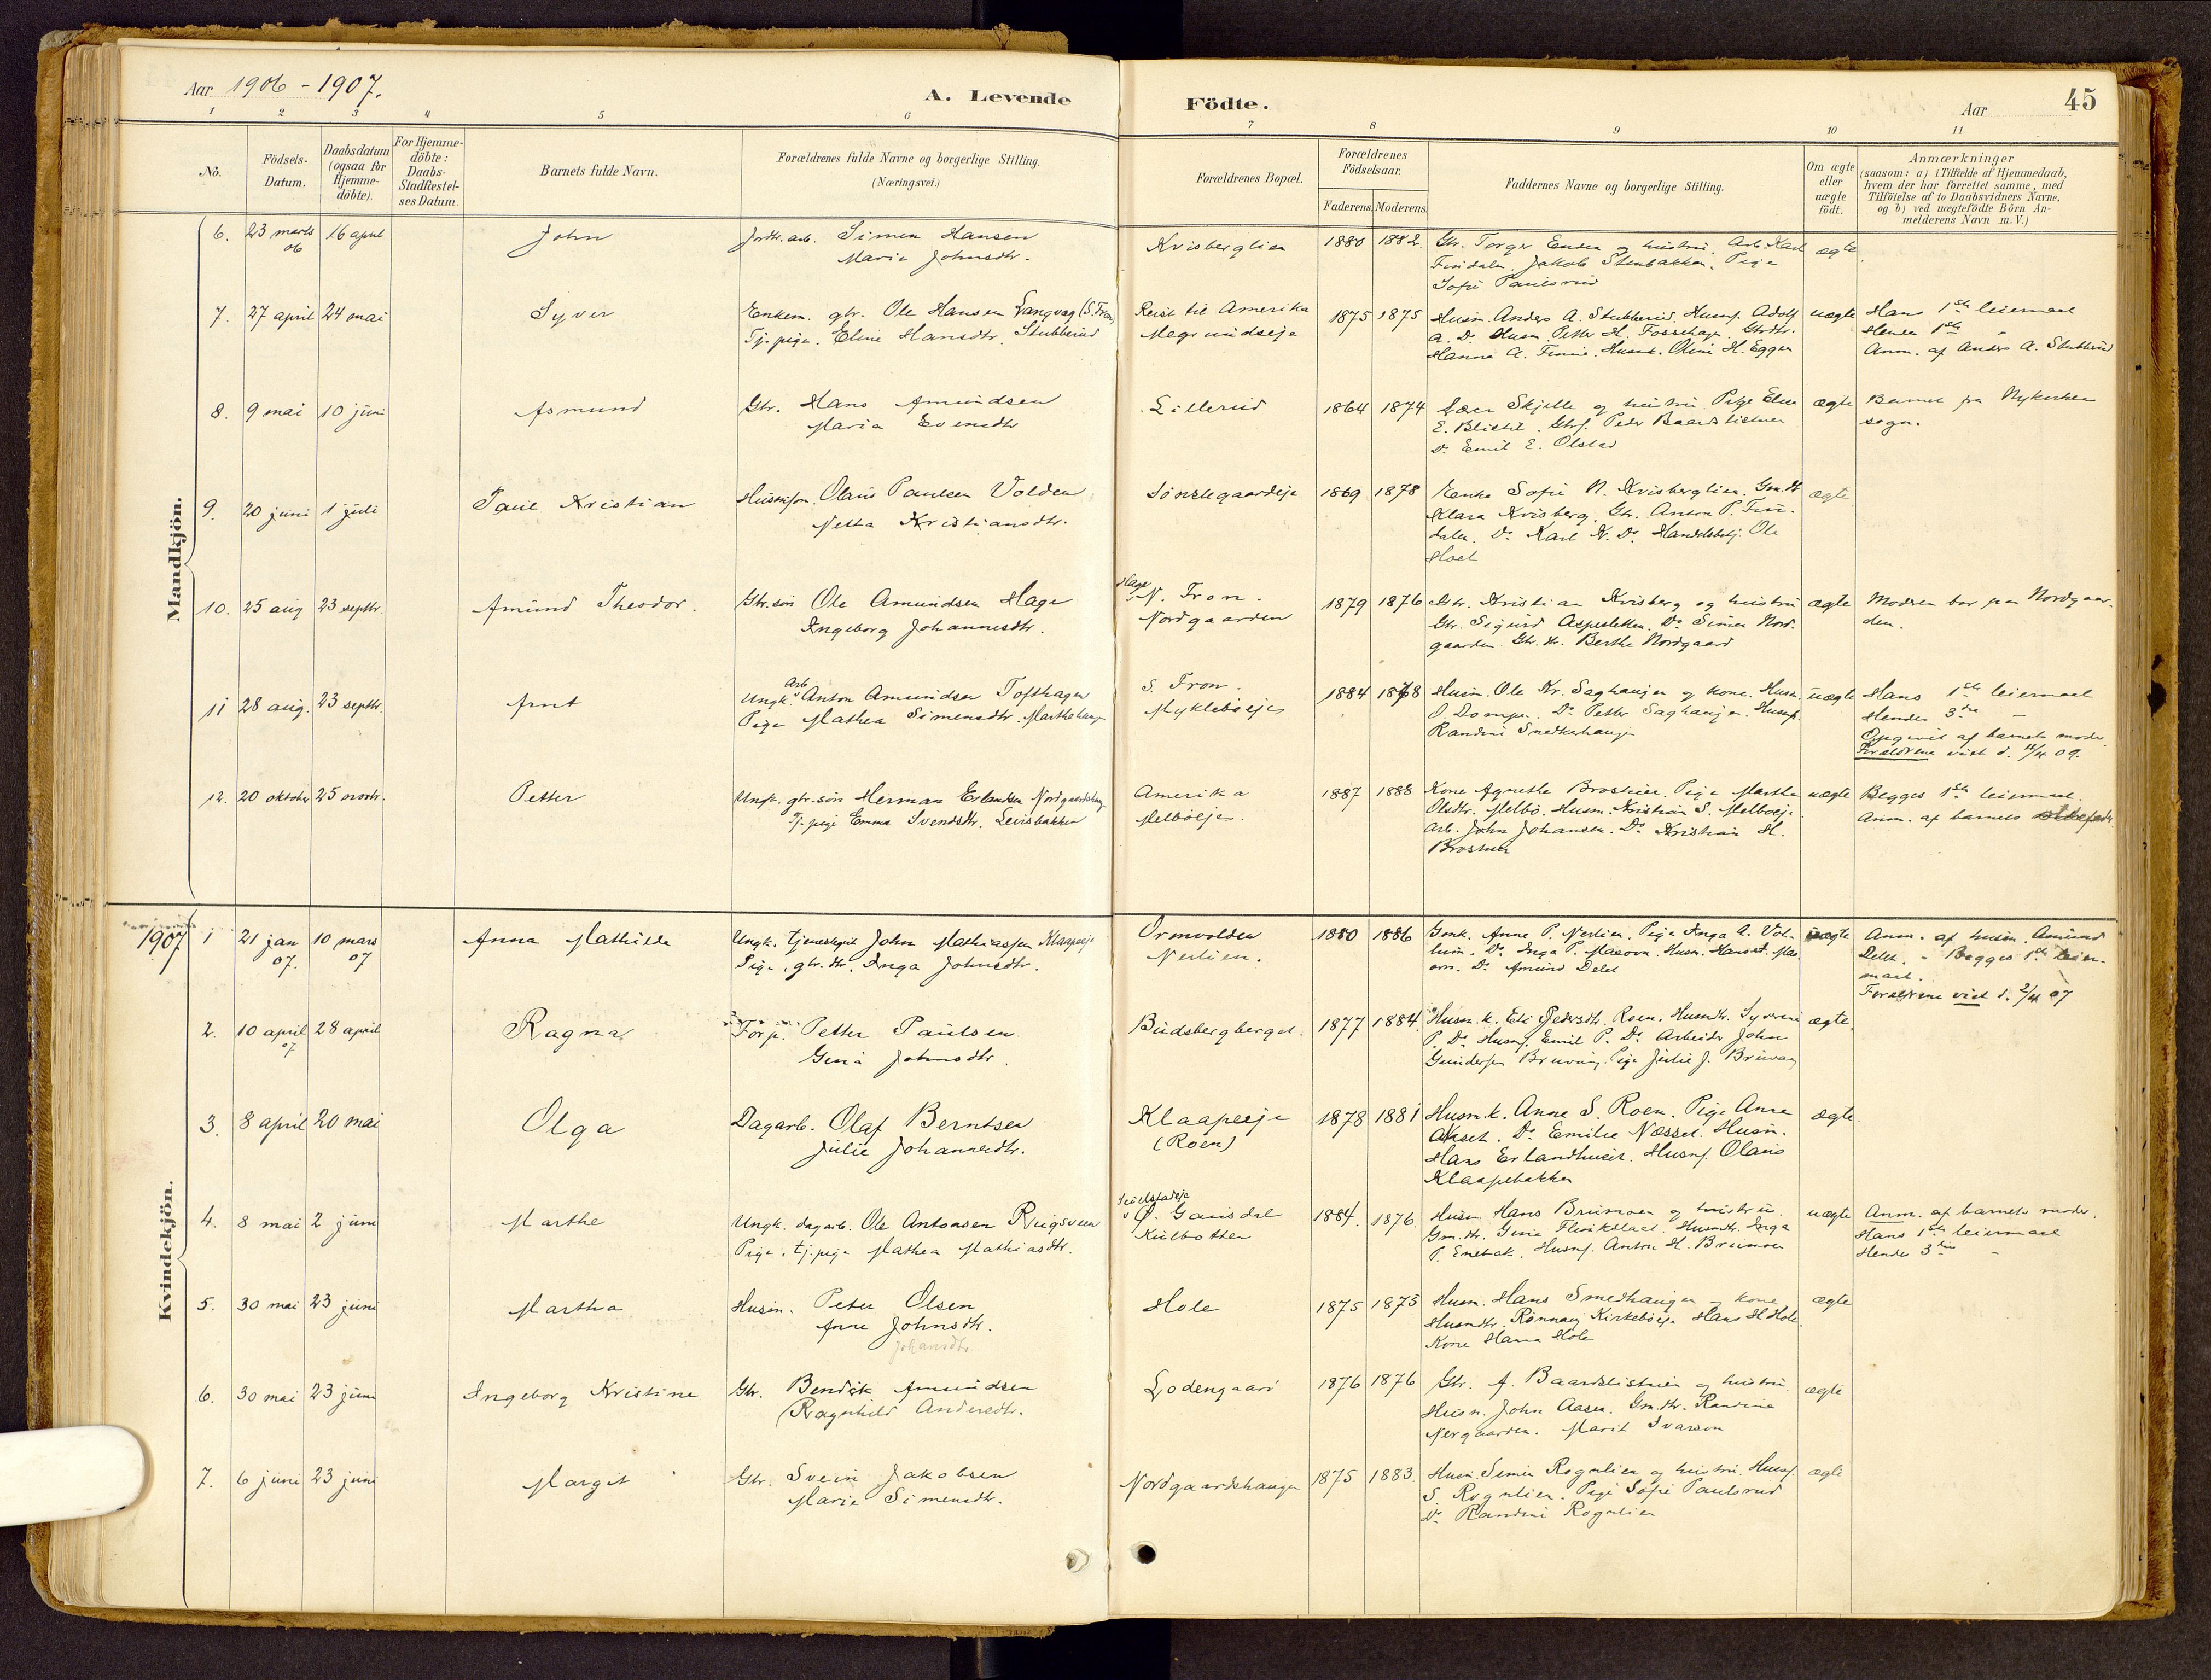 Aar 1906 - 1907.
A. Levende
Födte.
Aar
45
1 2 3 4 5 6 7 8 9 10 11
No.
Födsels-Datum.
Daabsdatum (ogsaa for Hjemme-döbte).
For Hjemme-döbte: Daabs-Stadfæstel-ses Datum.
Barnets fulde Navn.
Forældrenes fulde Navne og borgerlige Stilling.
(Næringsvei.)
Forældrenes Bopæl.
Forældrenes Födselsaar.
Faderens. Moderens.
Faddernes Navne og borgerlige Stilling.
Om ægte eller uægte födt.
Anmærkninger
(saasom: a) i Tilfælde af Hjemmedaab,
hvem der har forrettet samme, med
Tilföielse af to Daabsvidners Navne,
og b) ved uægtefödte Börn An-
melderens Navn m. V.)
Mandkjön.
6. 23 marts 06 16 april John
Simen Hansen
Marie Johnsdtr.
Kvisberglien 1880 1882.
Gbr. Torger og hustru. Arb. Karl
Jakob Pige
Sofie Paulsrud
ægte
7. 27 april 24 mai Syver
Enkem. gbr. Ole Hansen Langvag (S. Fron)
Tj. pige. Eline Hansdtr. Stubberud
Reist til Amerika
Megrundseje
1875 1875
Husm. Anders A. Stubberud. Husmf. Adolf
A. Do Husm. Petter H. Fossehagen. Gbrdtr.
Hanna A. Husmk. Oline H. Eggen
uægte
Hans 1ste leiermaal
Hendes 1ste "
Anm. af Anders A. Stubberud
8. 9 mai 10 juni Asmund
Gbr. Hans Amundsen
Maria Evensdtr
Lillerud 1864 1874
Lærer Skjelle og hustru. Pige Elise
E. Gbrf. Peder Baardslistuen
Do Emil E. Olstad
ægte
Barnet fra Nykirken
sogn.
9. 20 juni 1 juli Paul Kristian
Olaus Paulsen Volden
Netta Kristiansdtr.
Sönstegaardeje 1869 1878
Enke Sofie N. Kvisberglien. Gm. dtr
Klara Kvisberg. Gbr. Anton P.
Do Karl N. Do Handelsbetj. Ole
Moel
ægte
10. 25 aug 23 septbr. Amund Theodor.
Gbr. sön Ole Amundsen Hage
Ingeborg Johannesdtr.
Hage i N. Fron.
Nordgaarden
1879 1876
Gbr. Kristian Kvisberg og hustru
Gbr. Sigurd Aspesletten. Do Simen Nord-
gaarden. Gbr. dtr. Berthe Nordgaard
ægte
Moderen bor paa Nordgaar-
den.
11 28 aug. 23 septbr. Arnt
Ungk. Arb. Anton Amundsen Tofthagen
Pige Mathea Simensdtr.
S. Fron.
Mykleböeje
1884 1878
Husm. Ole Kr. Saghaugen og kone. Husm.
O. Dompen. Do Petter Saghaugen. Husmf.
Randine Smedhaugen
uægte
Hans 1ste leiermaal
Hendes 3die "
Opgivet af barnets moder.
Forældrene viet d. 11/4 09.
12. 20 oktober 25 novbr. Petter
Ungk. gbr. sön Herman Erlandsen Nordgaardshaugen
Tj. pige Emma Svendsdtr. Levisbakken
Amerika
Melböeje.
1887 1888
Kone Agnethe Pige Marthe
Olsdtr. Melbö. Husm. Kristian S. Melböeje.
Arb. John Johansen. Do Kristian H.
uægte
Begges 1ste leiermaal.
Anm. af barnets
Kvindekjön.
1907 1 21 jan 07. 10 mars 07 Anna Mathilda
Ungk. John Mathiassen Klaapeeje
Pige, gbr. dtr. Inga Johnsdtr.
Ormvolden
Nerlien.
1880 1886
Gmk. Anne P. Nerlien. Pige Inga A. Vol-
Do Inga P. Husm. Hans
Do Amund Delet
uægte
Anm. af husm. Amund
Delet. - Begges 1ste leier-
maal.
Forældrene viet d. 2/4 07
2. 10 april 07 28 april Ragna
Forp. Petter Paulsen
Gina Johnsdtr.
Budsbergberget. 1877 1884.
Husm. k. Eli Pedersdtr. Roen. Husmdtr. Syverine
P. Do Husmf. Emil P. Do Arbeider John
Gundersen Pige Julie J.
ægte.
3. 8 april 20 mai Olga
Dagarb. Olaf Berntsen
Julie Johannesdtr.
Klaapeeje
(Roen)
1878 1881
Husm. k. Anne S. Roen. Pige Anne
Do Emilie Næsset. Husm.
Hans Husmf. Olaus
Klaapebakken
ægte
4. 8 mai 2 juni Marthe
Ungk. dagarb. Ole Antonsen Rugsveen
Pige, tj. pige Mathea Mathiasdtr.
Ö. Gausdal
Kulbotten
1884. 1876.
Husm Hans Brumoen og hustru.
Gm. dtr. Gina Husmdtr. Inga
P. Husmf. Anton H. Brumoen
uægte
Anm. af barnets moder.
Hans 1ste leiermaal
Hendes 3die "
5. 30 mai 23 juni Martha
Husm. Peter Olsen
Anne Johnsdtr.
Johansdtr
Hole 1875 1873
Husm. Hans Smedhaugen og kone
Husmdtr. Rönnaug Kirkeböeje Hans H Hole.
Kone Hanna Hole
ægte
6. 30 mai 23 juni Ingeborg Kristine
Gbr. Bendik Amundsen
Ragnhild Andersdtr.
Lodengaard 1876 1876
Gbr. A. Baardslistuen og hustru.
Husm. John Aasen. Gm. dtr. Randine
Nergaarden. Marit Ivarson
ægte
7. 6 juni 23 juni Margit
Gbr. Svein Jakobsen
Marie Simensdtr.
Nordgaardshaugen 1875 1883.
Husm. Simen Rognlien og hustru. Husmf.
S. Rognlien. Pige Sofie Paulsrud
Do Randine Rognlien
ægte